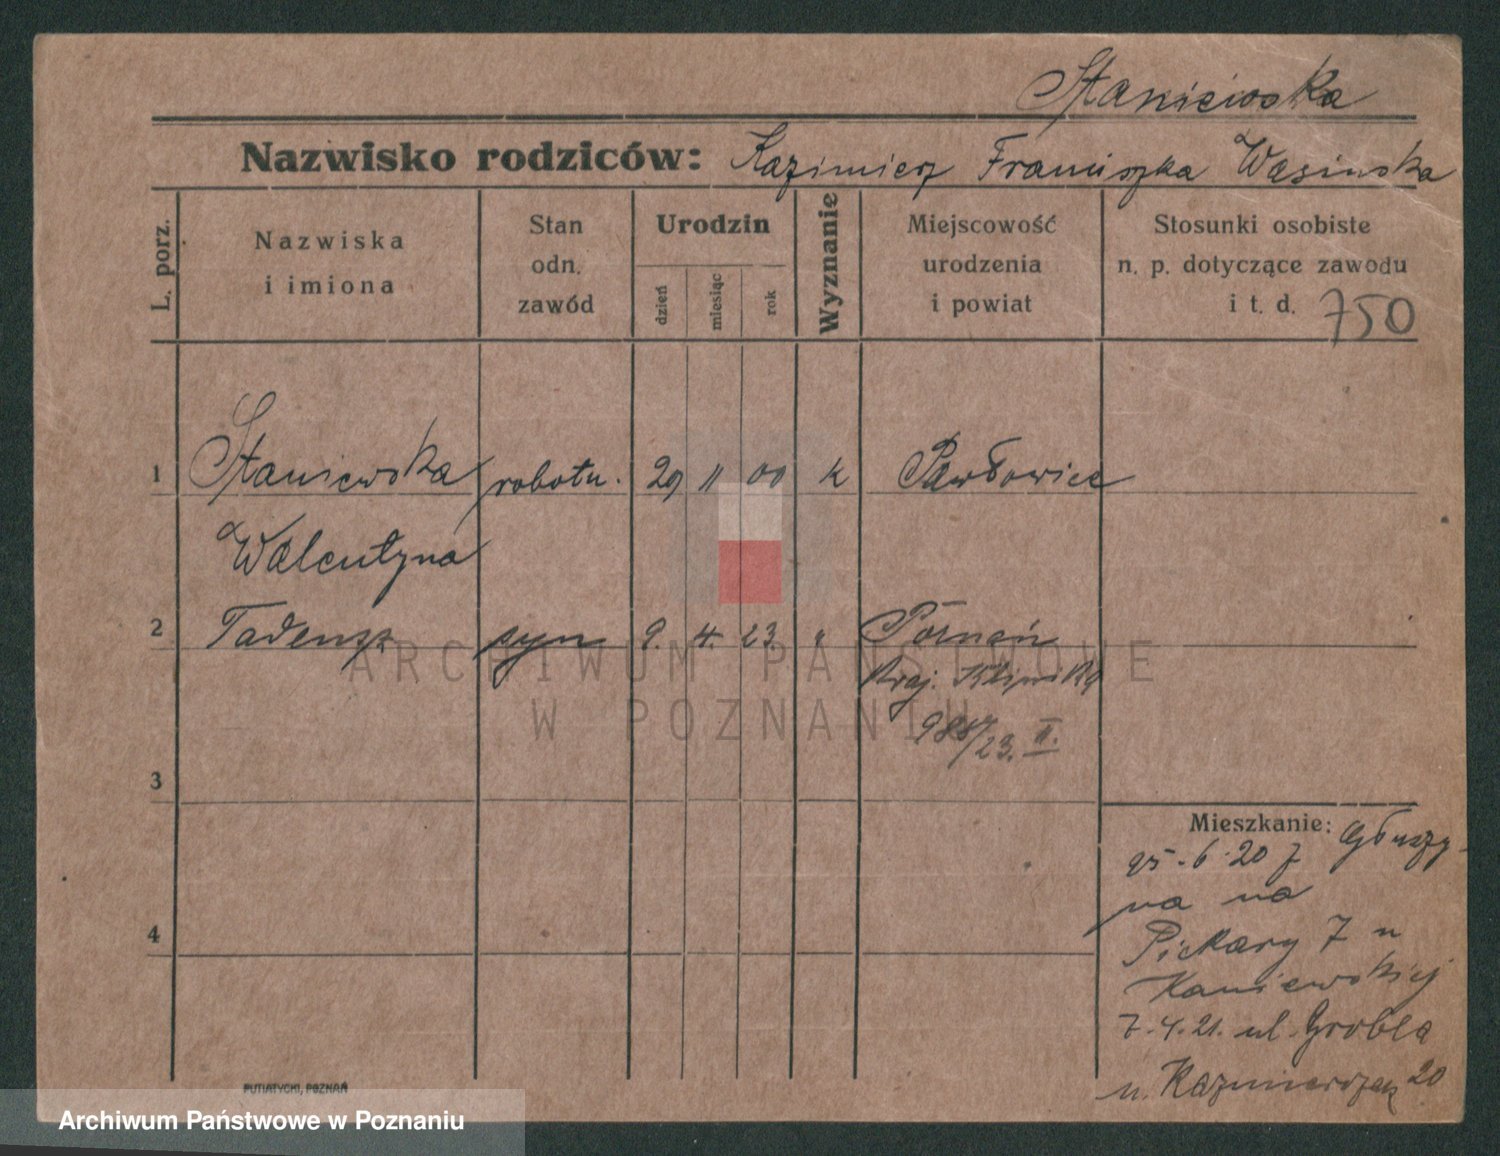 Staniewska
Nazwisko rodziców: Kazimierz Franciszka Wasinska
L. porz.
Nazwiska
i imiona
Stan
odn.
zawód
Urodzin
dzień
miesiąc
rok
Wyznanie
Miejscowość
urodzenia
i powiat
Stosunki osobiste
n. p. dotyczące zawodu
i t. d. 750
1 Staniewska robotn. 29 11 00 k Pawłowice
Walentyna
2 Tadeusz syn 9. 4. 23. " Poznań
Kraj. Klinika
/23. II.
3
4
Mieszkanie: Głuszy-
25.6.20 z
na na
Piekary 7 u
Kaniewskiej
7.4.21. ul. Grobla
u. Kazmierczak 20
PUTIATYCKI, POZNAŃ
ARCHIWUM PAŃSTWOWE
W POZNANIU
Archiwum Państwowe w Poznaniu